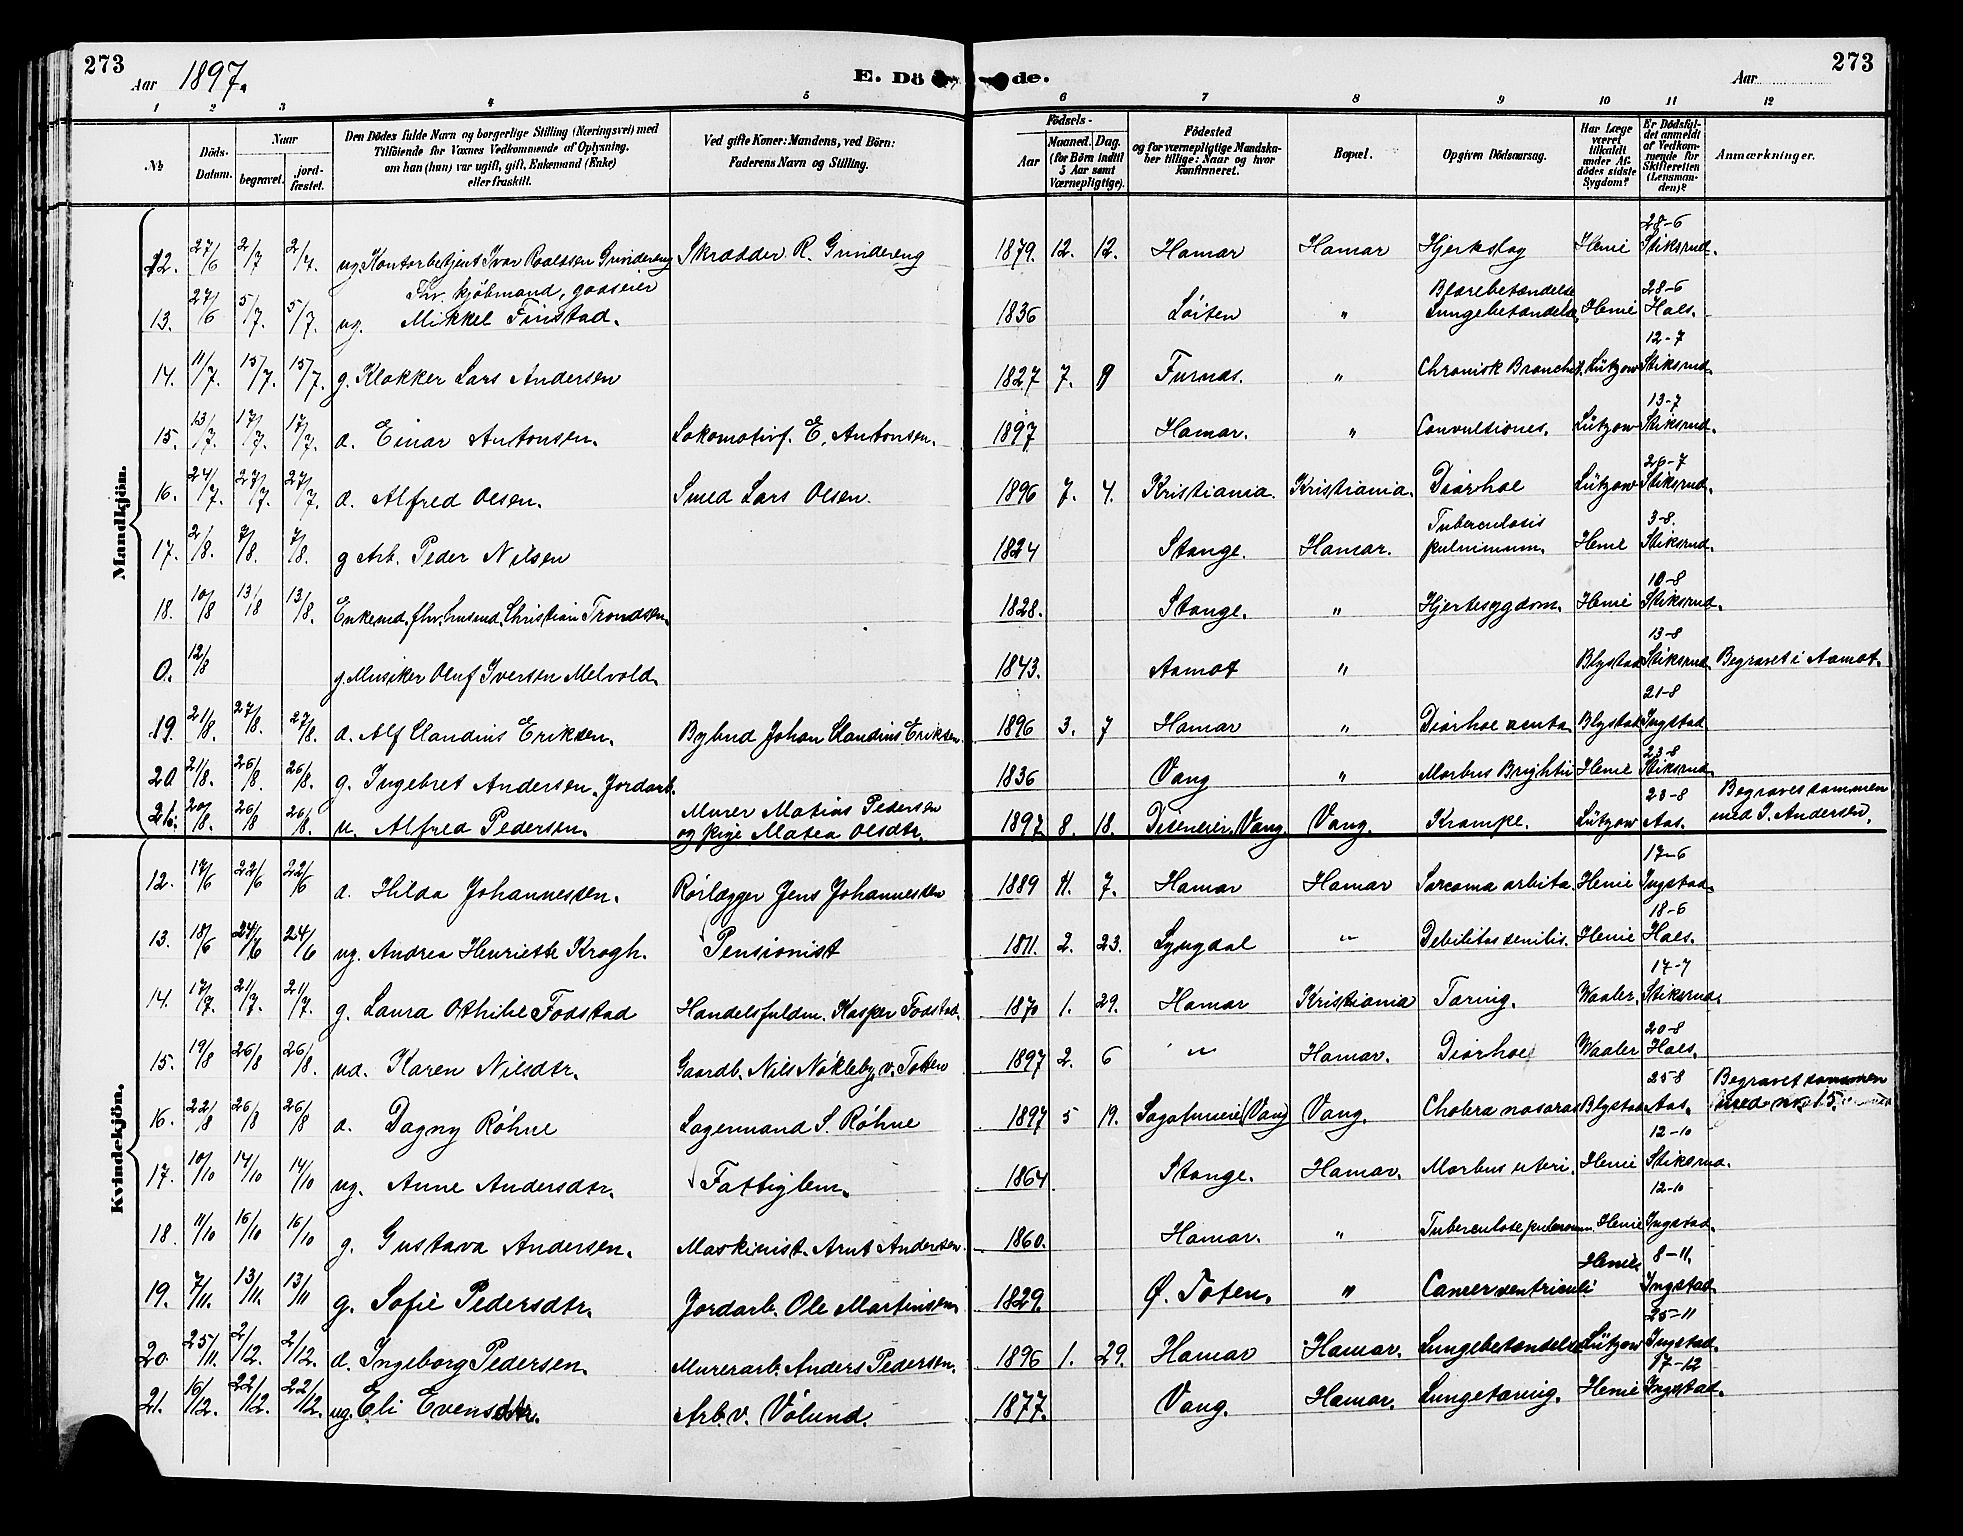 273
Aar 1897.
E. Dö de.
Aar
273
1 2 3 4 5 6 7 8 9 10 11 12
No
Döds-Datum.
Naar
begravet.
jord-fæstet.
Den Dödes fulde Navn og borgerlige Stilling (Næringsvei) med
Tilföiende for Voxnes Vedkommende af Oplysning,
om han (hun) var ugift, gift, Enkemand (Enke)
eller fraskilt.
Ved gifte Koner: Mandens, ved Börn:
Faderens Navn og Stilling.
Födsels-
Aar
Maaned. Dag.
(for Börn indtil
5 Aar samt
Værnepligtige).
Födested
og for værnepligtige Mandska-
ber tillige: Naar og hvor
konfirmeret.
Bopæl.
Opgiven Dödsaarsag.
Har Læge
været
tilkaldt
under Af-
dödes sidste
Sygdom?
Er Dödsfal-
det anmeldt
af Vedkom-
mende for
Skifteretten
(Lensman-
den)?
Anmærkninger.
Mandkjön.
12. 27/6 2/7 2/7. ug Kontorbetjent Ivar Roaldsen Grindereng Skrædder R. Grindereng 1879. 12. 12. Hamar Hamar Hjerkslag Henie 28-6 Stiksrud.
13. 27/6 5/7. 5/7. ug. Fhv. kjöbmand, godseier Mikkel Finstad. 1836 Löiten " Blærebetændelse Lungebetændelse. Henie 28-6 Hoes.
14. 11/7. 15/7. 15/7. g. Klokker Lars Andersen 1827 7. Furnæs. " Chronisk Bronchit. Lützow 12-7 Stiksrud.
15. 13/7. 17/7. 17/7. d. Einar Antonsen. Lokomotivf. E. Antonsen. 1897 Hamar. " Convulsiones. Lützow 13-7 Stiksrud.
16. 24/7. 27/7. 27/7. d. Alfred Olsen. Smed Lars Olsen. 1896 7. 4. Kristiania. Kristiania. Diarhoe Lützow 26-7 Stiksrud.
17. 2/8. 7/8. 7/8. g Arb. Peder Nilsen 1824 Stange. Hamar. Tuberculosis pulmimum. Henie 3-8. Stiksrud.
18. 10/8 13/8 13/8. Enkemd. fhv. husmd. Christian Trondsen. 1828. Stange. " Hjertesygdom. Henie 10-8 Stiksrud.
0. 12/8 g. Musiker Oluf Iversen Melvold. 1843. Aamot " Blystad 13-8 Stiksrud. Begravet i Aamot.
19. 21/8. 27/8. 27/8. d. Alf Claudius Eriksen. Bybud Johan Claudius Eriksen. 1896 3. 7 Hamar " Diarhoe acuta Blystad 21-8 Ingstad
20 21/8. 26/8. 26/8. g. Ingebret Andersen. Jordarb. 1836 Vang " Morbus Brightii Henie 23-8 Stiksrud.
21. 20/8. 26/8 26/8. u. Alfred Pedersen. Murer Matius Pedersen og pige Matea Olsdtr. 1897 8. 18. Diseneier, Vang Vang. Krampe. Lützow 23-8 Aas. Begraves sammen med I. Andersen.
Kvindekjön.
12. 17/6 22/6 22/6 d. Hilda Johannessen. Rörlægger Jens Johannessen 1889 11. 7. Hamar Hamar Sarcoma orbita. Henie 17-6 Ingstad.
13. 18/6 24/6 24/6 ug. Andrea Henriette Krogh. Pensionist 1811. 2. 23. Lyngdal " Debilitas senilis. Henie 18-6 Hoes.
14. 17/7. 21/7. 21/7. g. Laura Othilie Fodstad Handelsfuldm. Kasper Fodstad. 1870 1. 29. Hamar Kristiania Tæring. Waaler. 17-7 Stiksrud.
15. 19/8 26/8 26/8. ud. Karen Nilsdtr. Gaardb. Nils Nökleby, v. Toten 1897 2. 6 " Hamar. Diarhoe Waaler 20-8 Hoes.
16. 22/8 26/8 26/8 d. Dagny Röhne Lagermand S. Röhne 1897 5 19. (Vang) Vang. Cholera Blystad 25-8 Aas. Begravet sammen med no. 15.
17. 10/10 14/10 14/10 ug. Anne Andersdtr. Fattiglem. 1864 Stange. Hamar. Morbus uteri. Henie 12-10 Stiksrud.
18. 11/10 16/10 16/10 g. Gustava Andersen. Maskinist. Arnt Andersen. 1860. Hamar. " Tuberculose pulmonum Henie 12-10 Ingstad.
19. 7/11. 13/11. 13/11 g. Sofie Pedersdtr. Jordarb. Ole Martinsen. 1829. Ø. Toten. " Cancer ventriculi Henie. 8-11. Ingstad.
20. 25/11. 2/12. 2/12. d. Ingeborg Pedersen. Murerarb. Anders Pedersen. 1896 1. 29. Hamar Hamar. Lungebetændelse Lützow 25-11 Ingstad.
21. 16/12. 22/12. 22/12. ug. Eli Evensdtr. Arb. v. Völund. 1877. Vang. Hamar. Lungetæring. Henie 17-12 Ingstad.